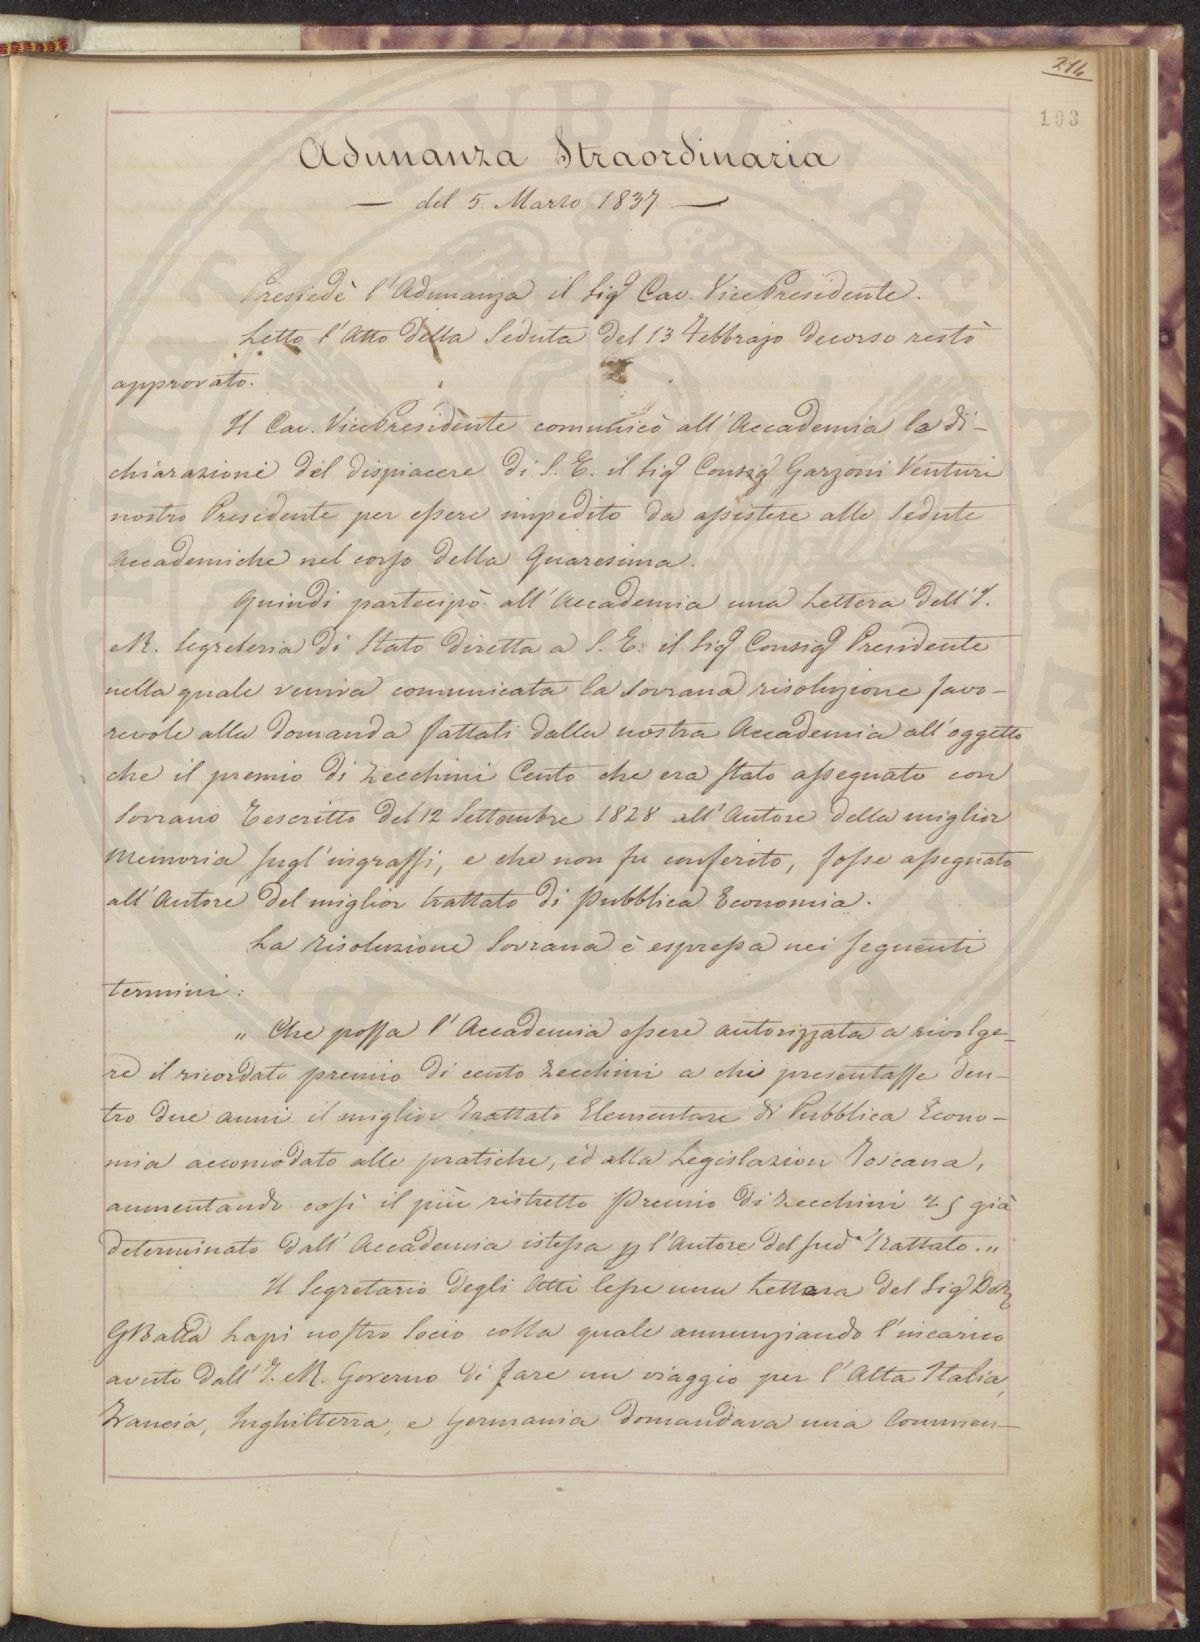 214
103
Adunanza Straordinaria
— del 5. Marzo 1837 —
Presiedè l'Adunanza il Sigr Cav. VicePresidente.
Letto l'Atto della Seduta del 13 Febbrajo decorso restò
approvato.
Il Cav. VicePresidente comunicò all'Accademia la di-
chiarazione del dispiacere di S. E. il Sigr Consigr Garzoni Venturi
nostro Presidente per essere impedito da assistere alle Sedute
Accademiche nel corso della Quaresima.
Quindi partecipò all'Accademia una Lettera dell'I.
e R. Segreteria di Stato diretta a S. E. il Sigr Consigr Presidente
nella quale veniva comunicata la Sovrana risoluzione favo-
revole alla domanda fattali dalla nostra Accademia all'oggetto
che il premio di Zecchini Cento che era stato assegnato con
Sovrano Rescritto del 12 Settembre 1828 all'Autore della miglior
Memoria sugl'ingrassi, e che non fu conferito, fosse assegnato
all'Autore del miglior trattato di pubblica Economia.
La risoluzione Sovrana è espressa nei seguenti
termini:
" Che possa l'Accademia essere autorizzata a rivolge-
re il ricordato premio di cento Zecchini a chi presentasse den-
tro due anni il miglior Trattato Elementare di Pubblica Econo-
mia accomodato alle pratiche, ed alla Legislazion Toscana,
aumentando così il più ristretto Premio di Zecchini 25 già
determinato dall'Accademia istessa p l'Autore del sudo Trattato. "
Il Segretario degli Atti lesse una Lettera del Sigr Dotr
GBatta Lapi nostro Socio colla quale annunziando l'incarico
avuto dall'I. e R. Governo di fare un viaggio per l'Alta Italia,
Francia, Inghilterra, e Germania domandava una Commen-